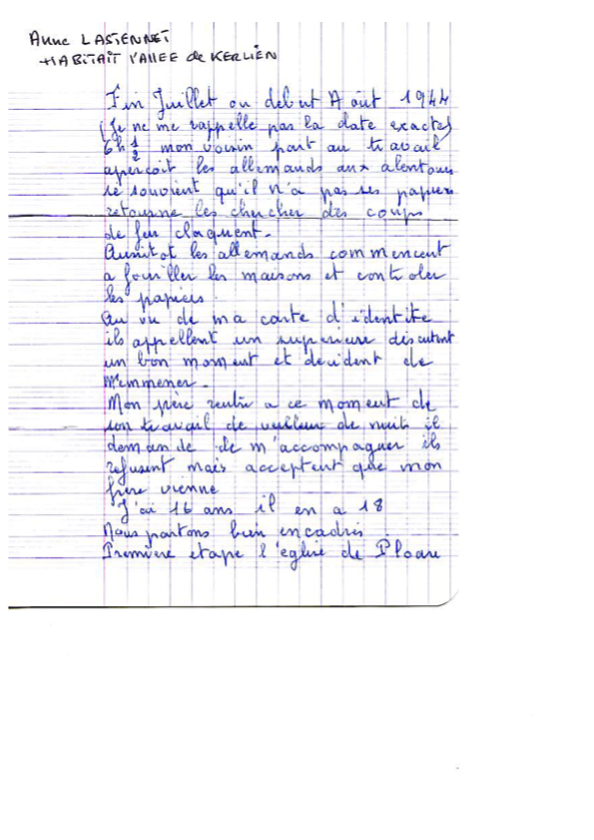 Anne LASTENNET
HABITAIT l'ALLEE de KERLIEN
Fin Juillet ou debut Août 1944
(Je ne me rappelle pas la date exacte)
6h 1/2 mon voisin part au travail
aperçoit les allemands aux alentours
se souvient qu'il n'a pas ses papiers
retourne les chercher des coups
de feu claquent.
Aussitot les allemands commencent
a fouiller les maisons et controler
les papiers.
Au vu de ma carte d'identite
ils appellent un superieur discutent
un bon moment et decident de
m'emmener.
Mon père rentre a ce moment de
son travail de veilleur de nuit il
demande de m'accompagner ils
refusent mais acceptent que mon
frere vienne
J'ai 16 ans il en a 18
Nous partons bien encadrés
Première etape l'eglise de Ploare